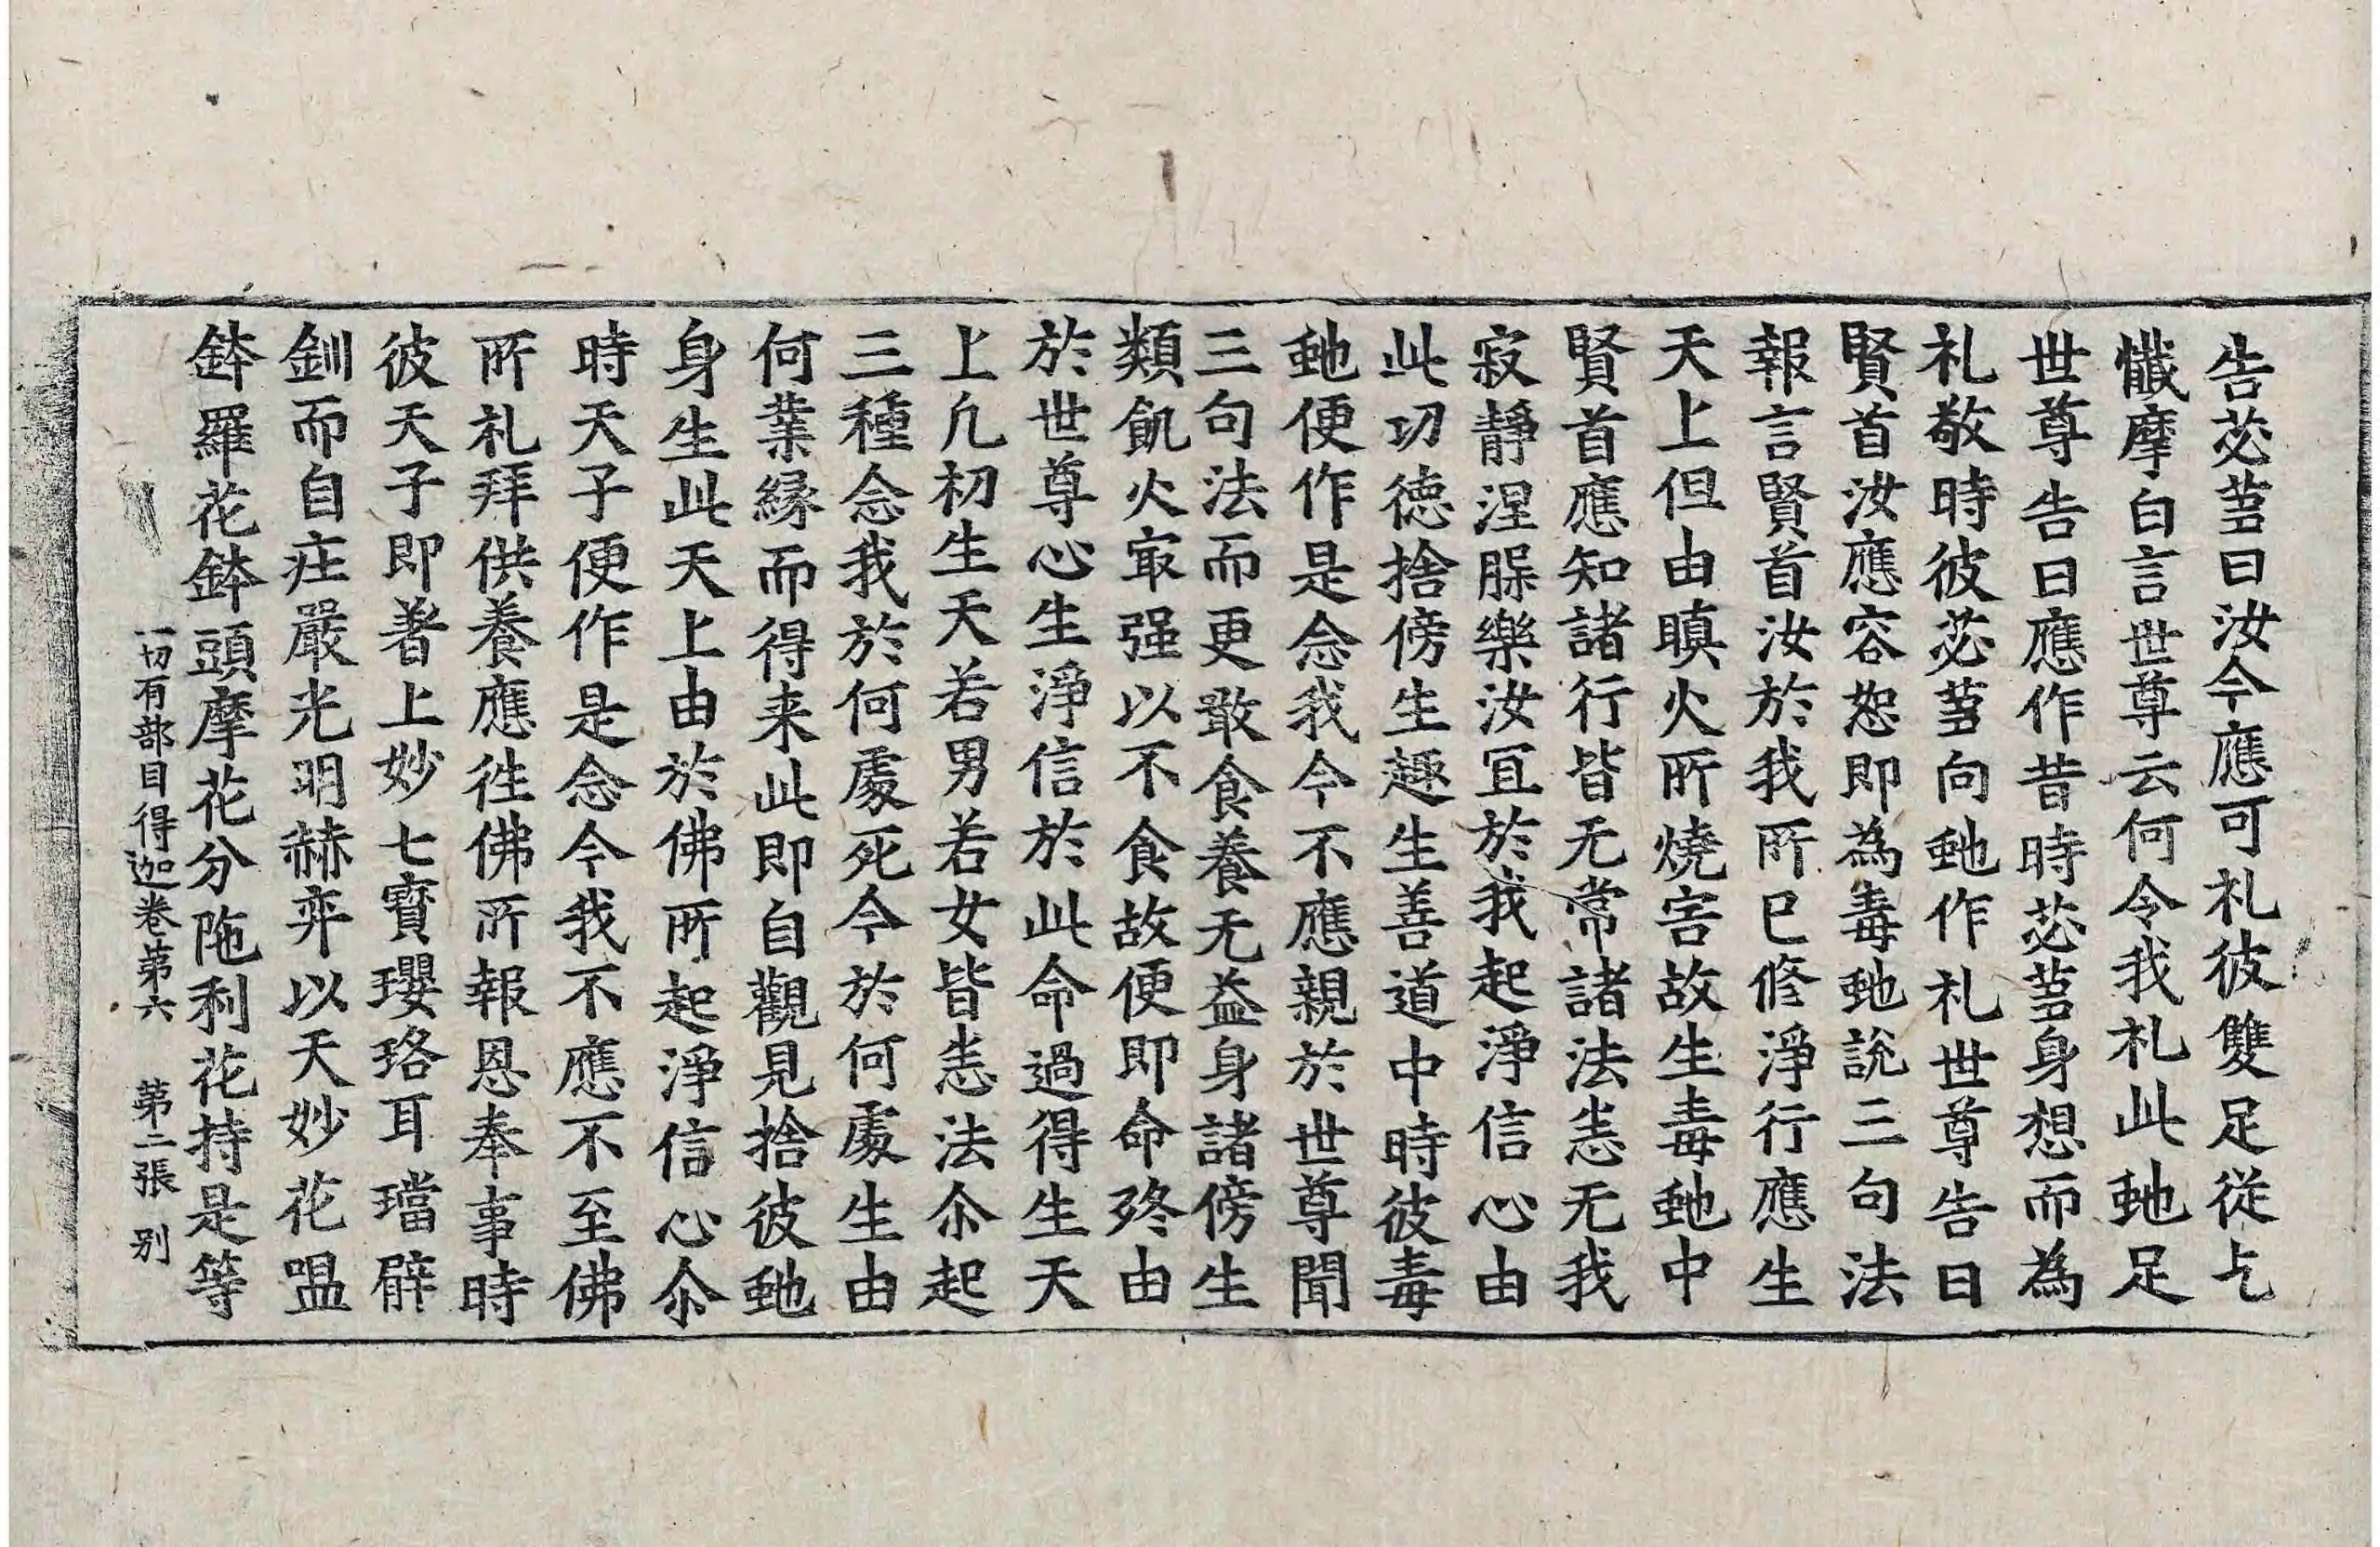 告苾蒭曰汝今應可礼彼雙足從乞
懺摩白言世尊云何令我礼此虵足
世尊告曰應作昔時苾蒭身想而為
礼敬時彼苾蒭向虵作礼世尊告曰
賢首汝應容恕即為毒虵說三句法
報言賢首汝於我所已修淨行應生
天上但由瞋火所燒害故生毒虵中
賢首應知諸行皆无常諸法恙无我
寂靜涅槃樂汝冝於我起淨信心由
此功徳捨傍生趣生善道中時彼毒
虵便作是念我今不應親於世尊聞
三句法而更敢食養无益身諸傍生
類飢火㝡强以不食故便即命終由
於世尊心生淨信於此命過得生天
上凡初生天若男若女皆恙法尒起
三種念我於何處死今於何處生由
何業縁而得来此即自觀見捨彼虵
身生此天上由於佛所起淨信心尒
時天子便作是念今我不應不至佛
所礼拜供養應徃佛所報恩奉事時
彼天子即著上妙七寳瓔珞耳璫臂
釧而自庄嚴光明赫弈以天妙花嗢
鉢羅花鉢頭摩花分陁利花持是等
一切有部目得迦卷第六 第二張 別